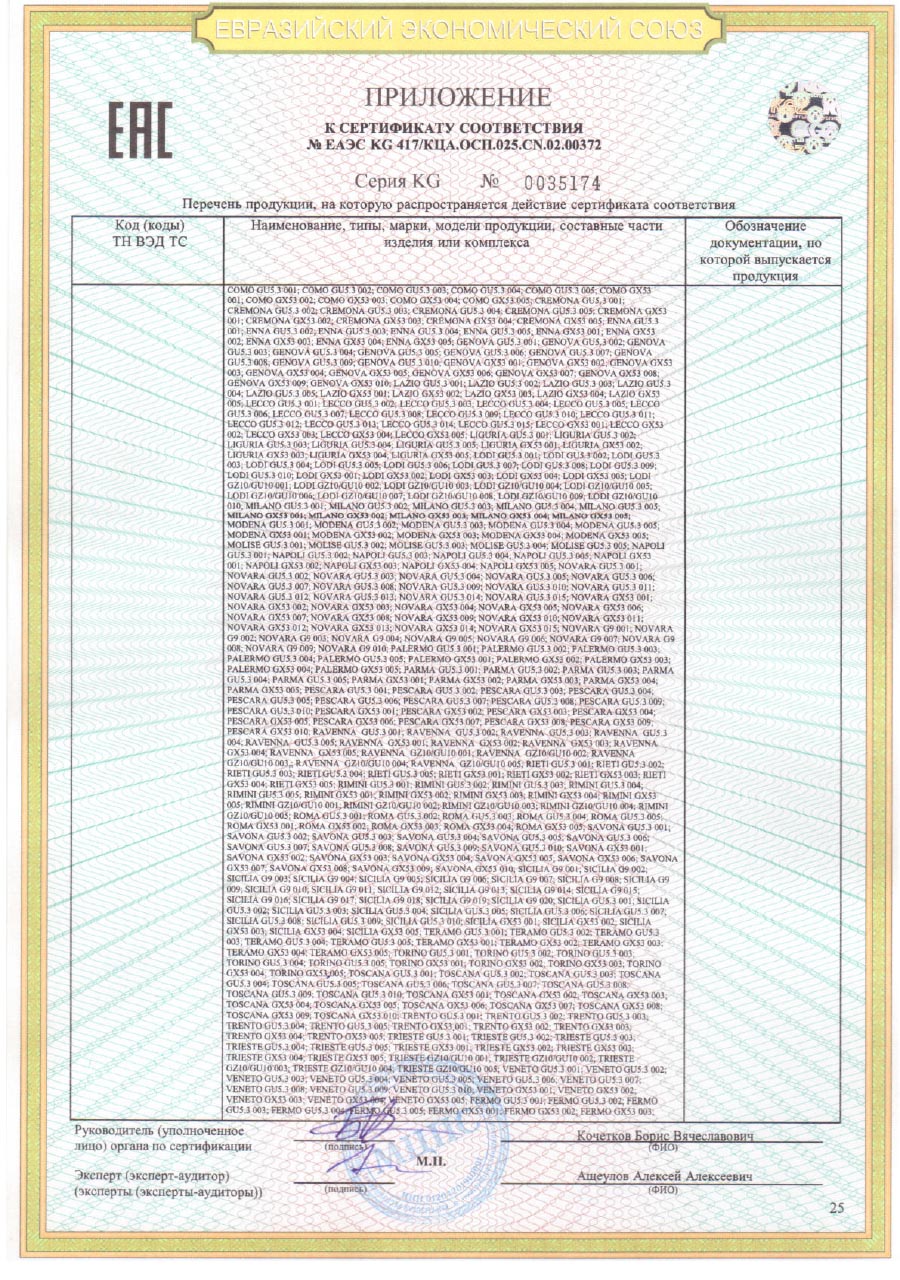 ЕВРАЗИЙСКИЙ ЭКОНОМИЧЕСКИЙ СОЮЗ
ЕАС
ПРИЛОЖЕНИЕ
К СЕРТИФИКАТУ СООТВЕТСТВИЯ
№ ЕАЭС KG 417/КЦА.ОСП.025.CN.02.00372
Серия KG № 0035174
Перечень продукции, на которую распространяется действие сертификата соответствия
Код (коды)
ТН ВЭД ТС
Наименование, типы, марки, модели продукции, составные части
изделия или комплекса
Обозначение
документации, по
которой выпускается
продукция
COMO GU5.3 001; COMO GU5.3 002; COMO GU5.3 003; COMO GU5.3 004; COMO GU5.3 005; COMO GX53
001; COMO GX53 002; COMO GX53 003; COMO GX53 004; COMO GX53 005; CREMONA GU5.3 001;
CREMONA GU5.3 002; CREMONA GU5.3 003; CREMONA GU5.3 004; CREMONA GU5.3 005; CREMONA GX53
001; CREMONA GX53 002; CREMONA GX53 003; CREMONA GX53 004; CREMONA GX53 005; ENNA GU5.3
001; ENNA GU5.3 002; ENNA GU5.3 003; ENNA GU5.3 004; ENNA GU5.3 005; ENNA GX53 001; ENNA GX53
002; ENNA GX53 003; ENNA GX53 004; ENNA GX53 005; GENOVA GU5.3 001; GENOVA GU5.3 002; GENOVA
GU5.3 003; GENOVA GU5.3 004; GENOVA GU5.3 005; GENOVA GU5.3 006; GENOVA GU5.3 007; GENOVA
GU5.3 008; GENOVA GU5.3 009; GENOVA GU5.3 010; GENOVA GX53 001; GENOVA GX53 002; GENOVA GX53
003; GENOVA GX53 004; GENOVA GX53 005; GENOVA GX53 006; GENOVA GX53 007; GENOVA GX53 008;
GENOVA GX53 009; GENOVA GX53 010; LAZIO GU5.3 001; LAZIO GU5.3 002; LAZIO GU5.3 003; LAZIO GU5.3
004; LAZIO GU5.3 005; LAZIO GX53 001; LAZIO GX53 002; LAZIO GX53 003; LAZIO GX53 004; LAZIO GX53
005; LECCO GU5.3 001; LECCO GU5.3 002; LECCO GU5.3 003; LECCO GU5.3 004; LECCO GU5.3 005; LECCO
GU5.3 006; LECCO GU5.3 007; LECCO GU5.3 008; LECCO GU5.3 009; LECCO GU5.3 010; LECCO GU5.3 011;
LECCO GU5.3 012; LECCO GU5.3 013; LECCO GU5.3 014; LECCO GU5.3 015; LECCO GX53 001; LECCO GX53
002; LECCO GX53 003; LECCO GX53 004; LECCO GX53 005; LIGURIA GU5.3 001; LIGURIA GU5.3 002;
LIGURIA GU5.3 003; LIGURIA GU5.3 004; LIGURIA GU5.3 005; LIGURIA GX53 001; LIGURIA GX53 002;
LIGURIA GX53 003; LIGURIA GX53 004; LIGURIA GX53 005; LODI GU5.3 001; LODI GU5.3 002; LODI GU5.3
003; LODI GU5.3 004; LODI GU5.3 005; LODI GU5.3 006; LODI GU5.3 007; LODI GU5.3 008; LODI GU5.3 009;
LODI GU5.3 010; LODI GX53 001; LODI GX53 002; LODI GX53 003; LODI GX53 004; LODI GX53 005; LODI
GZ10/GU10 001; LODI GZ10/GU10 002; LODI GZ10/GU10 003; LODI GZ10/GU10 004; LODI GZ10/GU10 005;
LODI GZ10/GU10 006; LODI GZ10/GU10 007; LODI GZ10/GU10 008; LODI GZ10/GU10 009; LODI GZ10/GU10
010; MILANO GU5.3 001; MILANO GU5.3 002; MILANO GU5.3 003; MILANO GU5.3 004; MILANO GU5.3 005;
MILANO GX53 001; MILANO GX53 002; MILANO GX53 003; MILANO GX53 004; MILANO GX53 005;
MODENA GU5.3 001; MODENA GU5.3 002; MODENA GU5.3 003; MODENA GU5.3 004; MODENA GU5.3 005;
MODENA GX53 001; MODENA GX53 002; MODENA GX53 003; MODENA GX53 004; MODENA GX53 005;
MOLISE GU5.3 001; MOLISE GU5.3 002; MOLISE GU5.3 003; MOLISE GU5.3 004; MOLISE GU5.3 005; NAPOLI
GU5.3 001; NAPOLI GU5.3 002; NAPOLI GU5.3 003; NAPOLI GU5.3 004; NAPOLI GU5.3 005; NAPOLI GX53
001; NAPOLI GX53 002; NAPOLI GX53 003; NAPOLI GX53 004; NAPOLI GX53 005; NOVARA GU5.3 001;
NOVARA GU5.3 002; NOVARA GU5.3 003; NOVARA GU5.3 004; NOVARA GU5.3 005; NOVARA GU5.3 006;
NOVARA GU5.3 007; NOVARA GU5.3 008; NOVARA GU5.3 009; NOVARA GU5.3 010; NOVARA GU5.3 011;
NOVARA GU5.3 012; NOVARA GU5.3 013; NOVARA GU5.3 014; NOVARA GU5.3 015; NOVARA GX53 001;
NOVARA GX53 002; NOVARA GX53 003; NOVARA GX53 004; NOVARA GX53 005; NOVARA GX53 006;
NOVARA GX53 007; NOVARA GX53 008; NOVARA GX53 009; NOVARA GX53 010; NOVARA GX53 011;
NOVARA GX53 012; NOVARA GX53 013; NOVARA GX53 014; NOVARA GX53 015; NOVARA G9 001; NOVARA
G9 002; NOVARA G9 003; NOVARA G9 004; NOVARA G9 005; NOVARA G9 006; NOVARA G9 007; NOVARA G9
008; NOVARA G9 009; NOVARA G9 010; PALERMO GU5.3 001; PALERMO GU5.3 002; PALERMO GU5.3 003;
PALERMO GU5.3 004; PALERMO GU5.3 005; PALERMO GX53 001; PALERMO GX53 002; PALERMO GX53 003;
PALERMO GX53 004; PALERMO GX53 005; PARMA GU5.3 001; PARMA GU5.3 002; PARMA GU5.3 003; PARMA
GU5.3 004; PARMA GU5.3 005; PARMA GX53 001; PARMA GX53 002; PARMA GX53 003; PARMA GX53 004;
PARMA GX53 005; PESCARA GU5.3 001; PESCARA GU5.3 002; PESCARA GU5.3 003; PESCARA GU5.3 004;
PESCARA GU5.3 005; PESCARA GU5.3 006; PESCARA GU5.3 007; PESCARA GU5.3 008; PESCARA GU5.3 009;
PESCARA GU5.3 010; PESCARA GX53 001; PESCARA GX53 002; PESCARA GX53 003; PESCARA GX53 004;
PESCARA GX53 005; PESCARA GX53 006; PESCARA GX53 007; PESCARA GX53 008; PESCARA GX53 009;
PESCARA GX53 010; RAVENNA GU5.3 001; RAVENNA GU5.3 002; RAVENNA GU5.3 003; RAVENNA GU5.3
004; RAVENNA GU5.3 005; RAVENNA GX53 001; RAVENNA GX53 002; RAVENNA GX53 003; RAVENNA
GX53 004; RAVENNA GX53 005; RAVENNA GZ10/GU10 001; RAVENNA GZ10/GU10 002; RAVENNA
GZ10/GU10 003; RAVENNA GZ10/GU10 004; RAVENNA GZ10/GU10 005; RIETI GU5.3 001; RIETI GU5.3 002;
RIETI GU5.3 003; RIETI GU5.3 004; RIETI GU5.3 005; RIETI GX53 001; RIETI GX53 002; RIETI GX53 003; RIETI
GX53 004; RIETI GX53 005; RIMINI GU5.3 001; RIMINI GU5.3 002; RIMINI GU5.3 003; RIMINI GU5.3 004;
RIMINI GU5.3 005; RIMINI GX53 001; RIMINI GX53 002; RIMINI GX53 003; RIMINI GX53 004; RIMINI GX53
005; RIMINI GZ10/GU10 001; RIMINI GZ10/GU10 002; RIMINI GZ10/GU10 003; RIMINI GZ10/GU10 004; RIMINI
GZ10/GU10 005; ROMA GU5.3 001; ROMA GU5.3 002; ROMA GU5.3 003; ROMA GU5.3 004; ROMA GU5.3 005;
ROMA GX53 001; ROMA GX53 002; ROMA GX53 003; ROMA GX53 004; ROMA GX53 005; SAVONA GU5.3 001;
SAVONA GU5.3 002; SAVONA GU5.3 003; SAVONA GU5.3 004; SAVONA GU5.3 005; SAVONA GU5.3 006;
SAVONA GU5.3 007; SAVONA GU5.3 008; SAVONA GU5.3 009; SAVONA GU5.3 010; SAVONA GX53 001;
SAVONA GX53 002; SAVONA GX53 003; SAVONA GX53 004; SAVONA GX53 005; SAVONA GX53 006; SAVONA
GX53 007; SAVONA GX53 008; SAVONA GX53 009; SAVONA GX53 010; SICILIA G9 001; SICILIA G9 002;
SICILIA G9 003; SICILIA G9 004; SICILIA G9 005; SICILIA G9 006; SICILIA G9 007; SICILIA G9 008; SICILIA G9
009; SICILIA G9 010; SICILIA G9 011; SICILIA G9 012; SICILIA G9 013; SICILIA G9 014; SICILIA G9 015;
SICILIA G9 016; SICILIA G9 017; SICILIA G9 018; SICILIA G9 019; SICILIA G9 020; SICILIA GU5.3 001; SICILIA
GU5.3 002; SICILIA GU5.3 003; SICILIA GU5.3 004; SICILIA GU5.3 005; SICILIA GU5.3 006; SICILIA GU5.3 007;
SICILIA GU5.3 008; SICILIA GU5.3 009; SICILIA GU5.3 010; SICILIA GX53 001; SICILIA GX53 002; SICILIA
GX53 003; SICILIA GX53 004; SICILIA GX53 005; TERAMO GU5.3 001; TERAMO GU5.3 002; TERAMO GU5.3
003; TERAMO GU5.3 004; TERAMO GU5.3 005; TERAMO GX53 001; TERAMO GX53 002; TERAMO GX53 003;
TERAMO GX53 004; TERAMO GX53 005; TORINO GU5.3 001; TORINO GU5.3 002; TORINO GU5.3 003;
TORINO GU5.3 004; TORINO GU5.3 005; TORINO GX53 001; TORINO GX53 002; TORINO GX53 003; TORINO
GX53 004; TORINO GX53 005; TOSCANA GU5.3 001; TOSCANA GU5.3 002; TOSCANA GU5.3 003; TOSCANA
GU5.3 004; TOSCANA GU5.3 005; TOSCANA GU5.3 006; TOSCANA GU5.3 007; TOSCANA GU5.3 008;
TOSCANA GU5.3 009; TOSCANA GU5.3 010; TOSCANA GX53 001; TOSCANA GX53 002; TOSCANA GX53 003;
TOSCANA GX53 004; TOSCANA GX53 005; TOSCANA GX53 006; TOSCANA GX53 007; TOSCANA GX53 008;
TOSCANA GX53 009; TOSCANA GX53 010; TRENTO GU5.3 001; TRENTO GU5.3 002; TRENTO GU5.3 003;
TRENTO GU5.3 004; TRENTO GU5.3 005; TRENTO GX53 001; TRENTO GX53 002; TRENTO GX53 003;
TRENTO GX53 004; TRENTO GX53 005; TRIESTE GU5.3 001; TRIESTE GU5.3 002; TRIESTE GU5.3 003;
TRIESTE GU5.3 004; TRIESTE GU5.3 005; TRIESTE GX53 001; TRIESTE GX53 002; TRIESTE GX53 003;
TRIESTE GX53 004; TRIESTE GX53 005; TRIESTE GZ10/GU10 001; TRIESTE GZ10/GU10 002; TRIESTE
GZ10/GU10 003; TRIESTE GZ10/GU10 004; TRIESTE GZ10/GU10 005; VENETO GU5.3 001; VENETO GU5.3 002;
VENETO GU5.3 003; VENETO GU5.3 004; VENETO GU5.3 005; VENETO GU5.3 006; VENETO GU5.3 007;
VENETO GU5.3 008; VENETO GU5.3 009; VENETO GU5.3 010; VENETO GX53 001; VENETO GX53 002;
VENETO GX53 003; VENETO GX53 004; VENETO GX53 005; FERMO GU5.3 001; FERMO GU5.3 002; FERMO
GU5.3 003; FERMO GU5.3 004; FERMO GU5.3 005; FERMO GX53 001; FERMO GX53 002; FERMO GX53 003;
Руководитель (уполномоченное
лицо) органа по сертификации
(подпись)
Кочетков Борис Вячеславович
(ФИО)
М.П.
Эксперт (эксперт-аудитор)
(эксперты (эксперты-аудиторы))
(подпись)
Ащеулов Алексей Алексеевич
(ФИО)
25